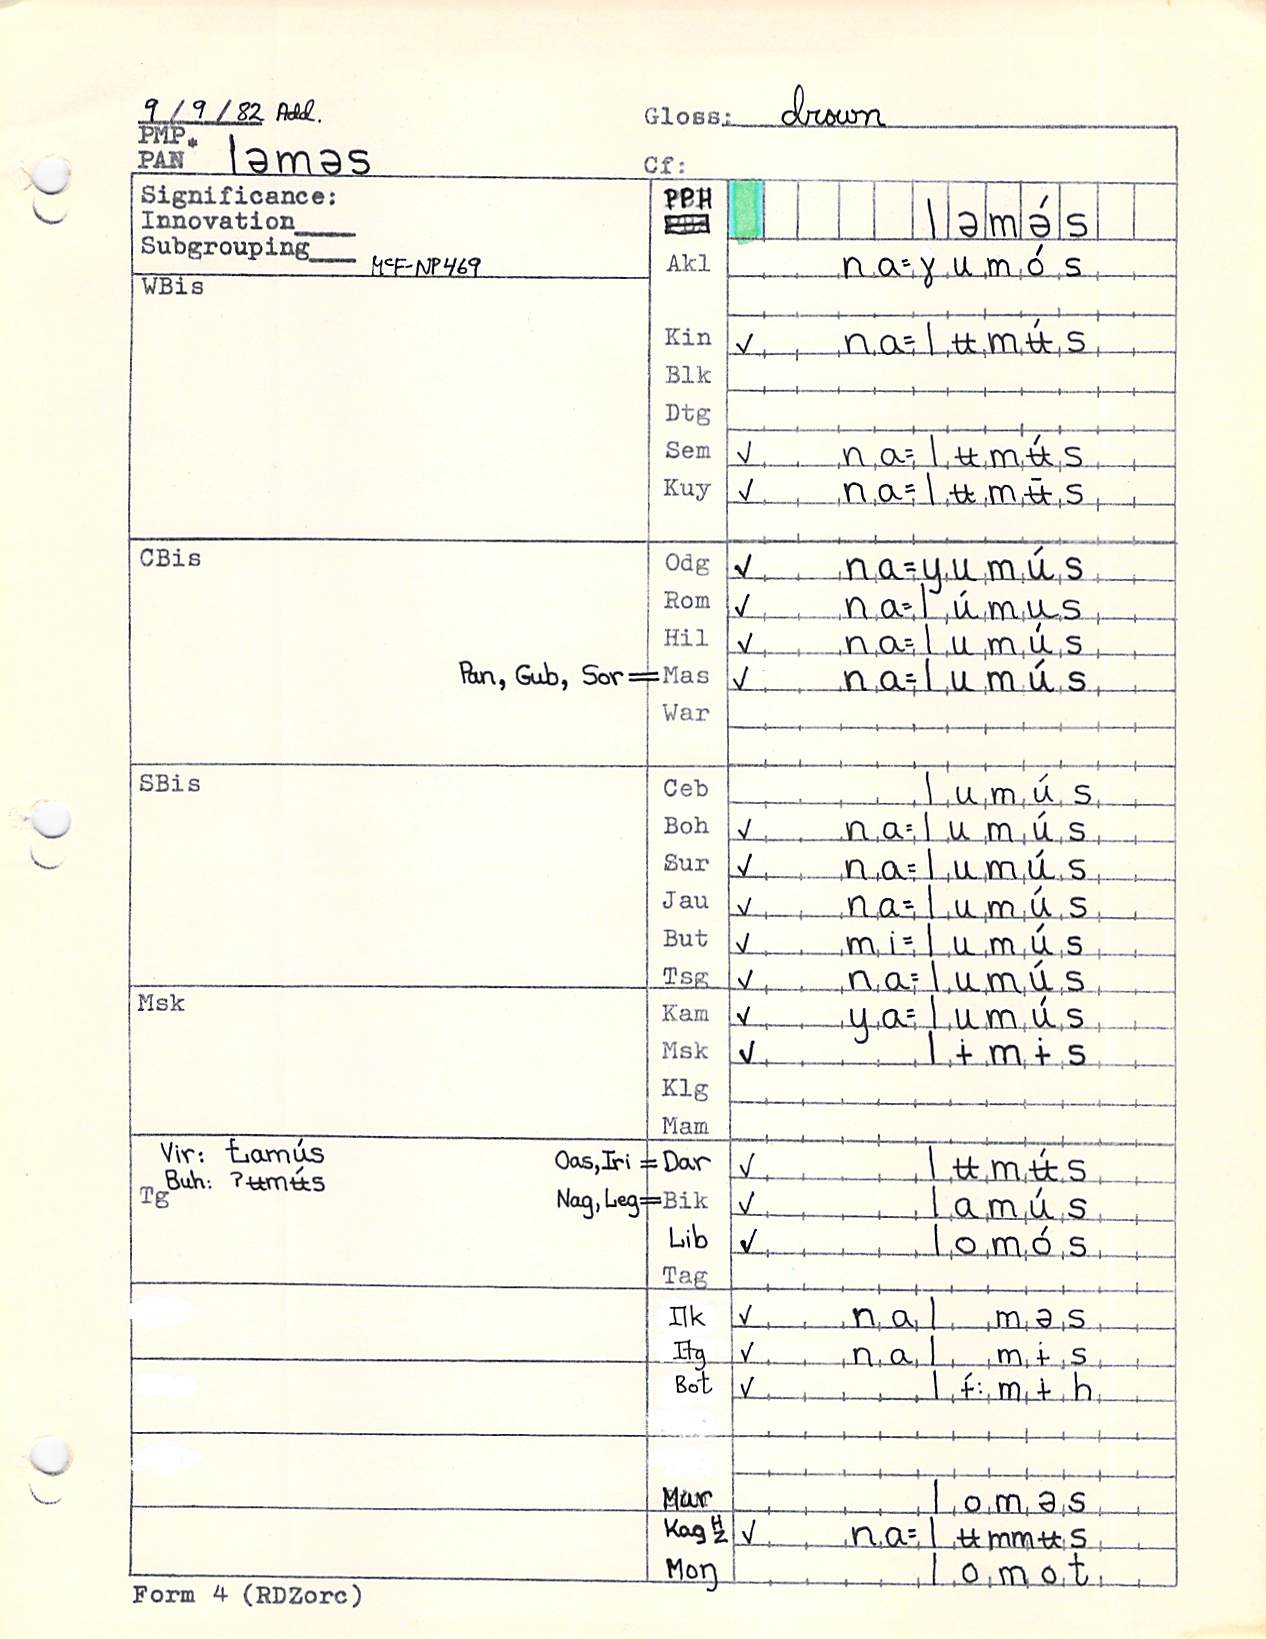 9/9/82 Add.
Gloss: drown
PMP
PAN * ləməs
Cf:
Significance:
Innovation
Subgrouping
McF-NP469
PPH ləmə́s
Akl na=ɣumós
WBis
Kin ✓ na=lʉmʉ́s
Blk
Dtg
Sem ✓ na=lʉmʉ́s
Kuy ✓ na=lʉmʉ̄s
CBis
Odg ✓ na=yumús
Rom ✓ na=lúmus
Hil ✓ na=lumús
Pan, Gub, Sor = Mas ✓ na=lumús
War
SBis
Ceb lumús
Boh ✓ na=lumús
Sur ✓ na=lumús
Jau ✓ na=lumús
But ✓ mi=lumús
Tsg ✓ na=lumús
Msk
Kam ✓ ya=lumús
Msk ✓ lɨmɨs
Klg
Mam
Vir: ŧamús
Oas, Iri = Dar ✓ lʉmʉ́s
Buh: ʔʉmʉ́s
Tg
Nag, Leg = Bik ✓ lamús
Lib ✓ lomós
Tag
Ilk ✓ nal məs
Itg ✓ nal mɨs
Bot ✓ lɨ́:mɨh
Mar loməs
Kag H/Z ✓ na=lʉmmʉs
Moŋ lomot
Form 4 (RDZorc)